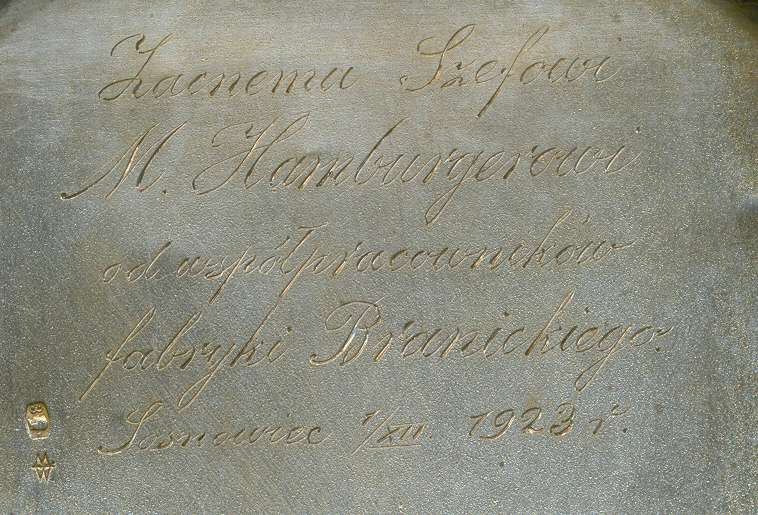 Zacnemu Szefowi
M. Hamburgerowi
od współpracowników
fabryki Branickiego.
Sosnowiec 1/XII. 1923 r.